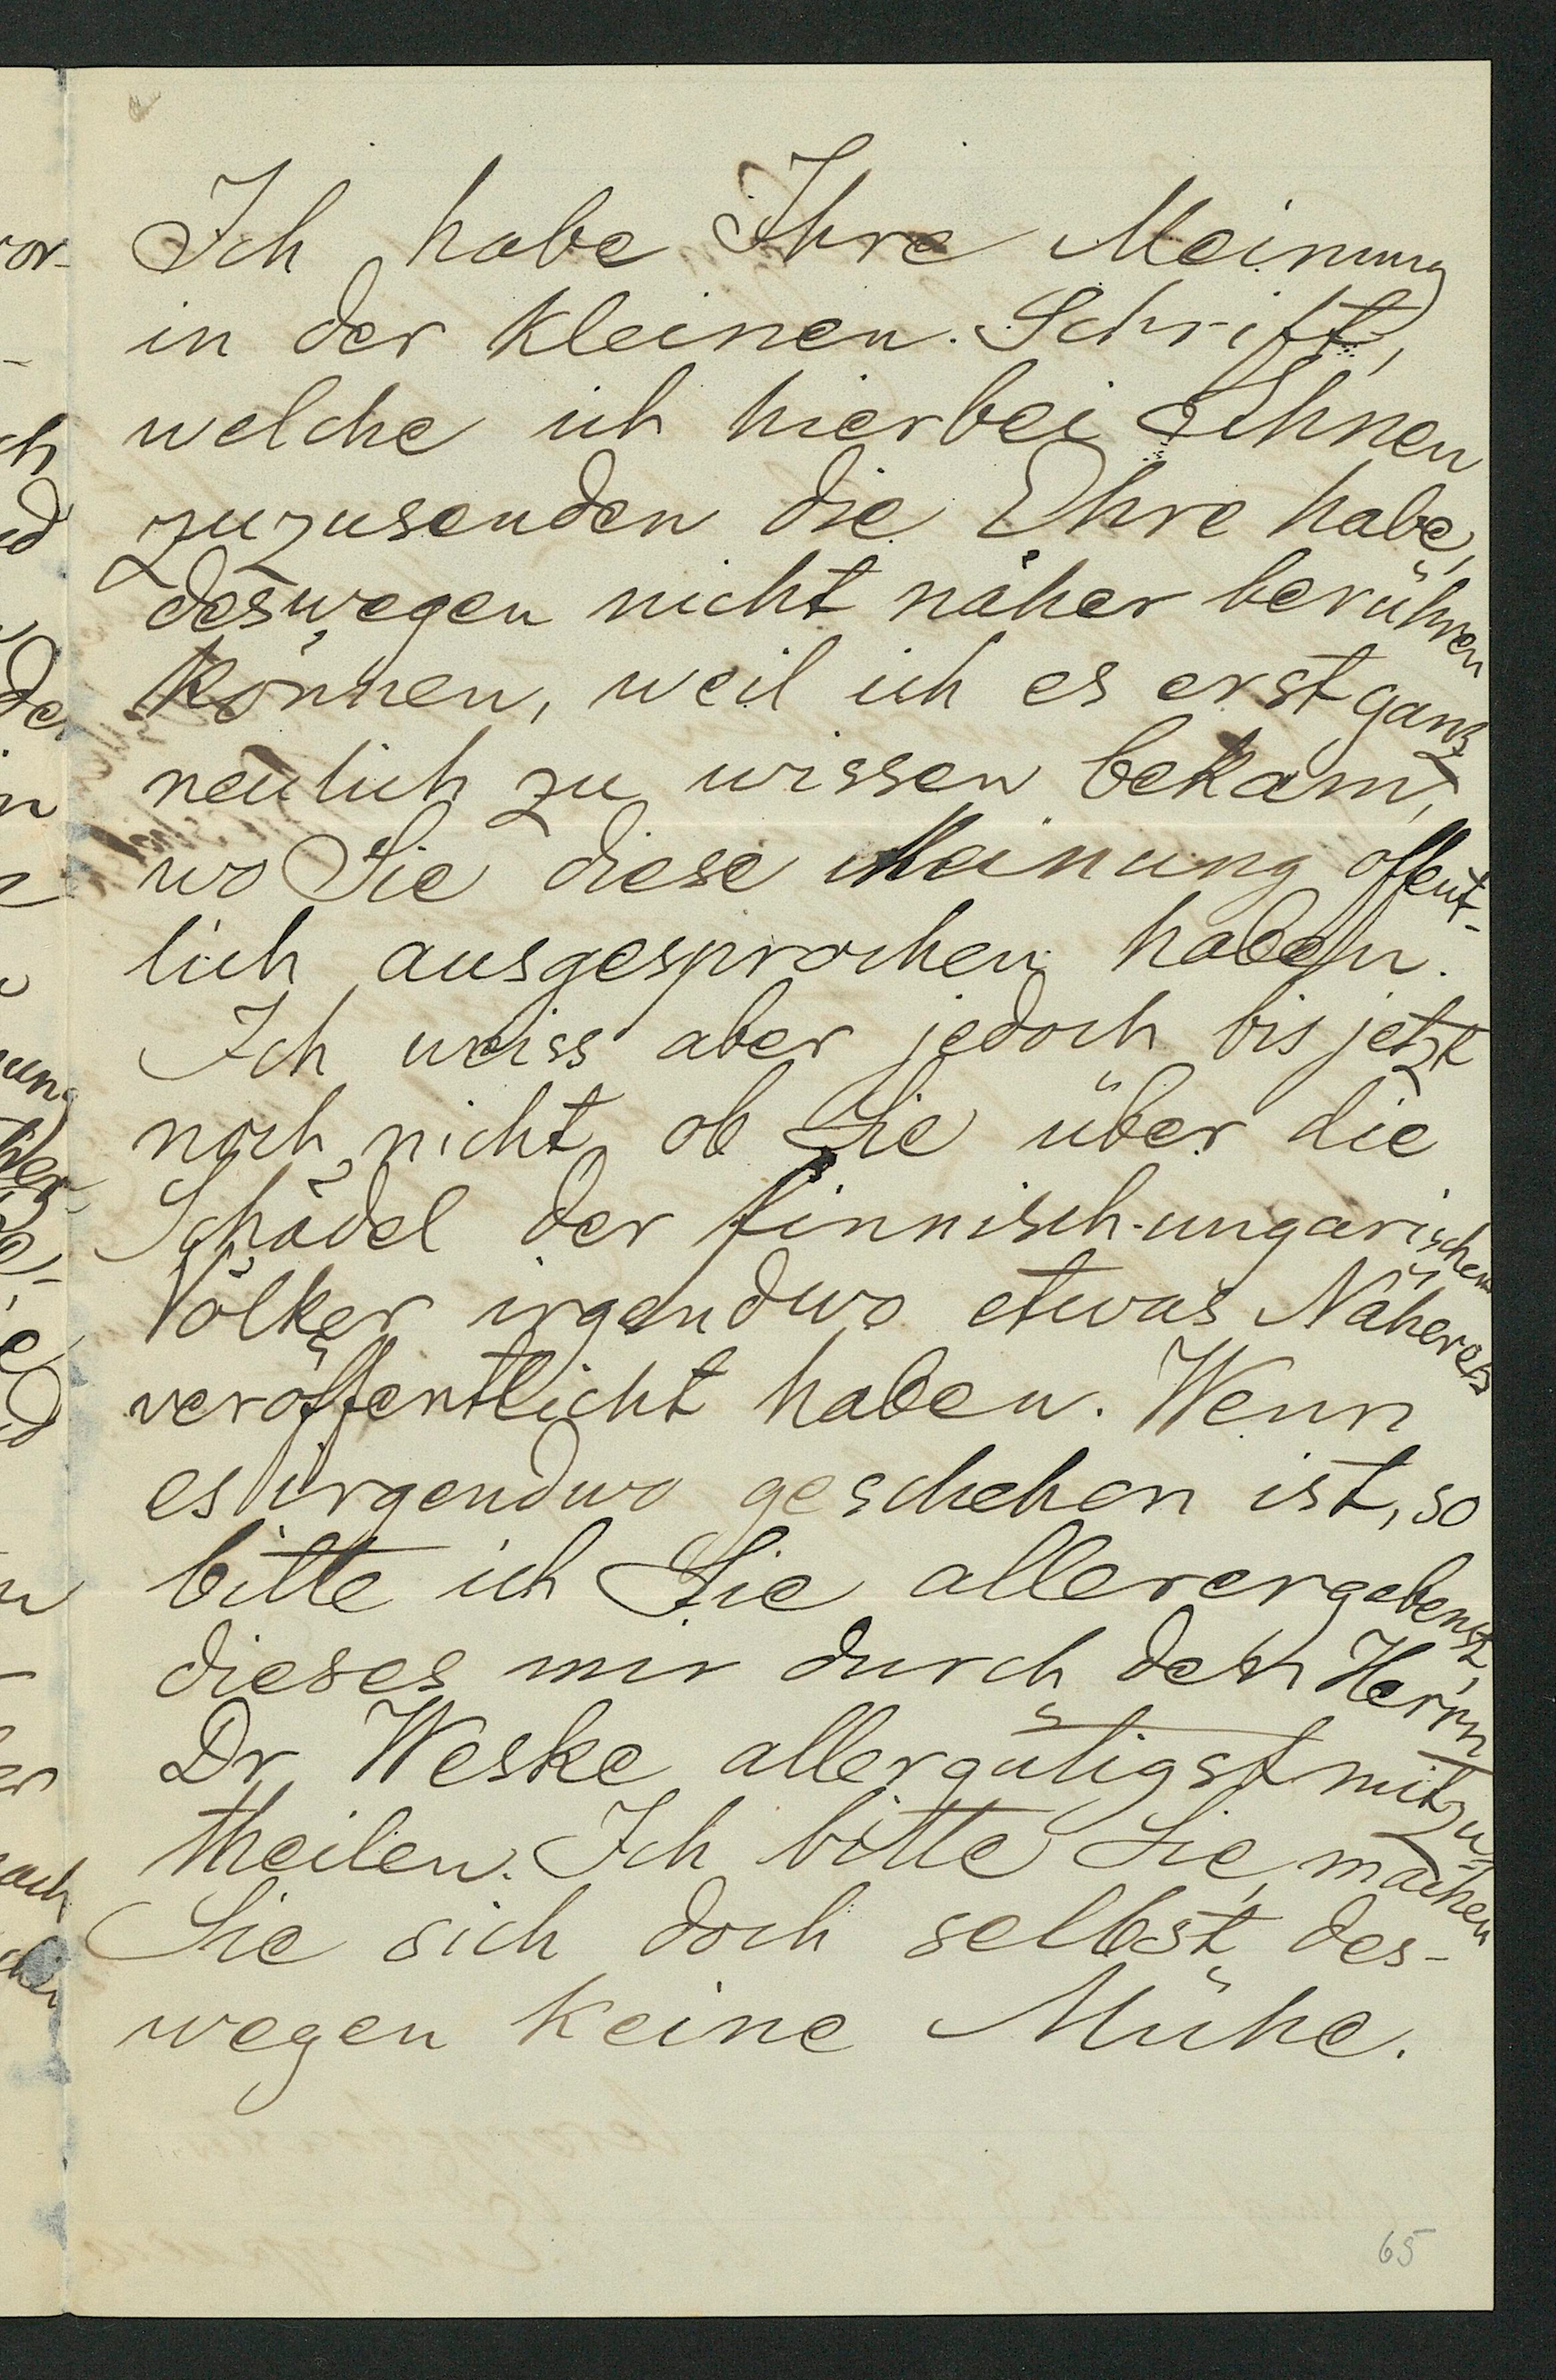 Ich habe Ihre Meinung
in der kleinen Schrift,
welche ich hierbei Ihnen
zuzusenden die Ehre habe,
deswegen nicht näher berühren
können, weil ich es erst ganz
neulich zu wissen bekam,
wo Sie diese Meinung öffent-
lich ausgesprochen haben.
Ich weiss aber jedoch bis jetzt
noch nicht, ob Sie über die
Schädel der finnisch-ungarischen
Völker irgendwo etwas Näheres
veröffentlicht haben. Wenn
es irgendwo geschehen ist, so
bitte ich Sie allerergebenst,
dieses mir durch den Herrn
Dr Weske allergütigst mitzu-
theilen. Ich bitte Sie, machen
Sie sich doch selbst des-
wegen keine Mühe.
65